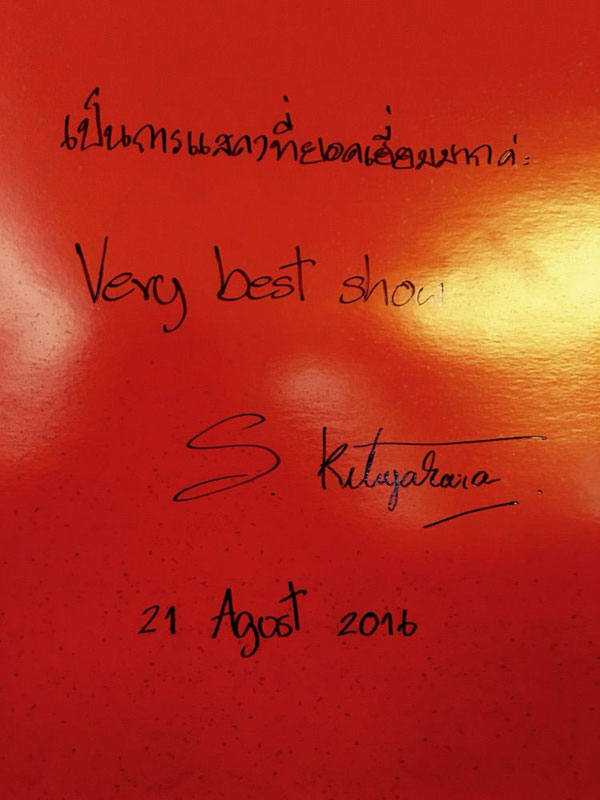 เป็นการแสดงที่ยอดเยี่ยมมากค่ะ
Very best show
S Kitiyakara
21 Agost 2016